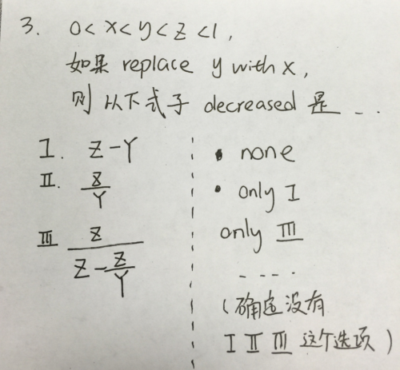 3. 0<x<y<z<1,
如果 replace y with x,
则 以下式子 decreased 是 ...
I. Z-Y
II. Z/Y
III Z/(Z-Z/Y)
• none
• only I
only III
....
(确定没有
I II III 这个选项)